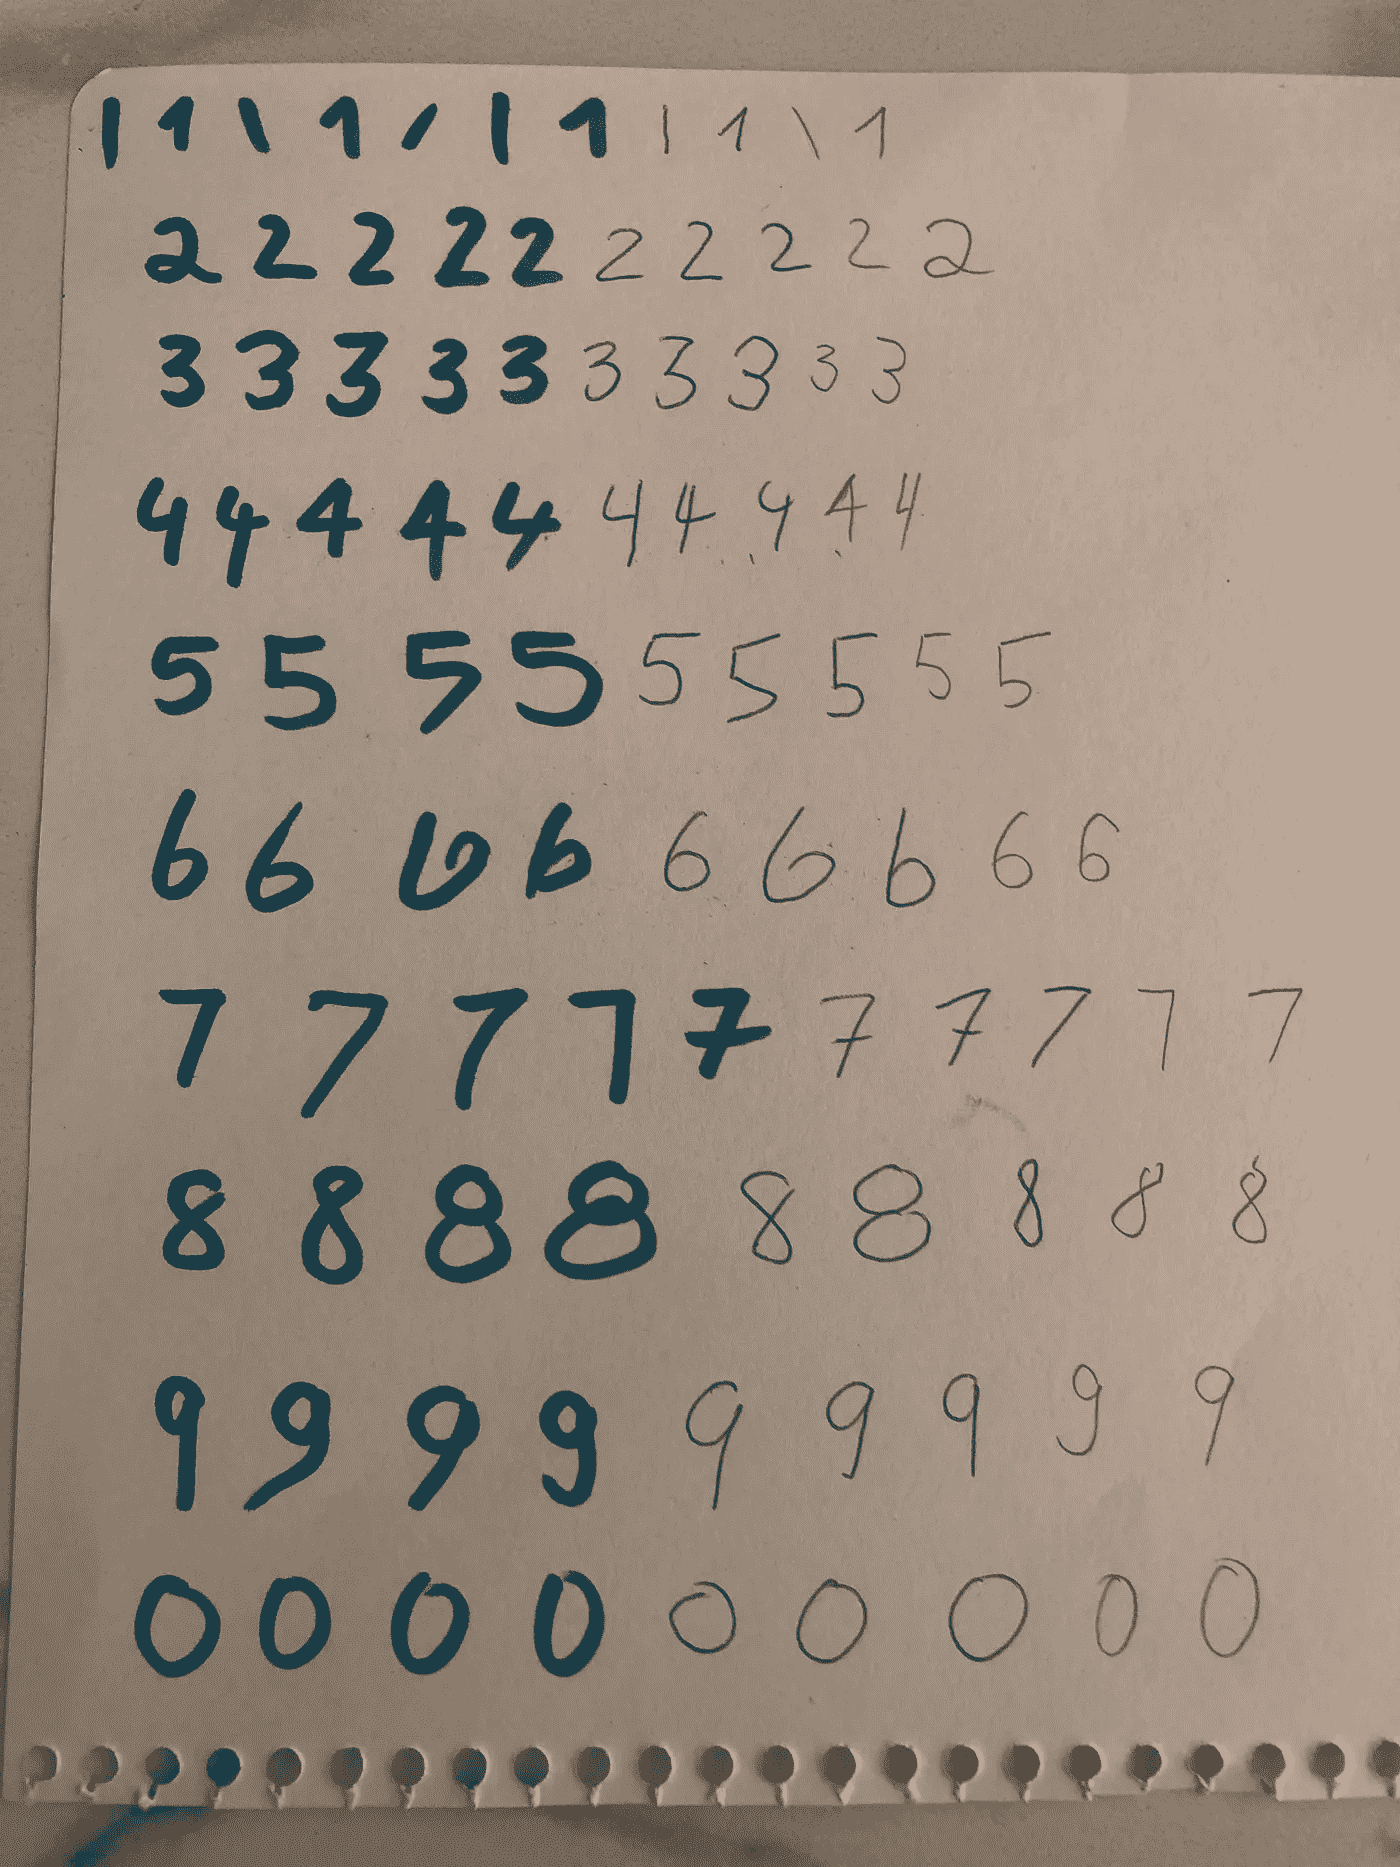 1 1 1 1 1 1 1 1 1 1 1
2 2 2 2 2 2 2 2 2 2
3 3 3 3 3 3 3 3 3 3
4 4 4 4 4 4 4 4 4 4
5 5 5 5 5 5 5 5 5
6 6 6 6 6 6 6 6 6
7 7 7 7 7 7 7 7 7 7
8 8 8 8 8 8 8 8 8
9 9 9 9 9 9 9 9 9
0 0 0 0 0 0 0 0 0